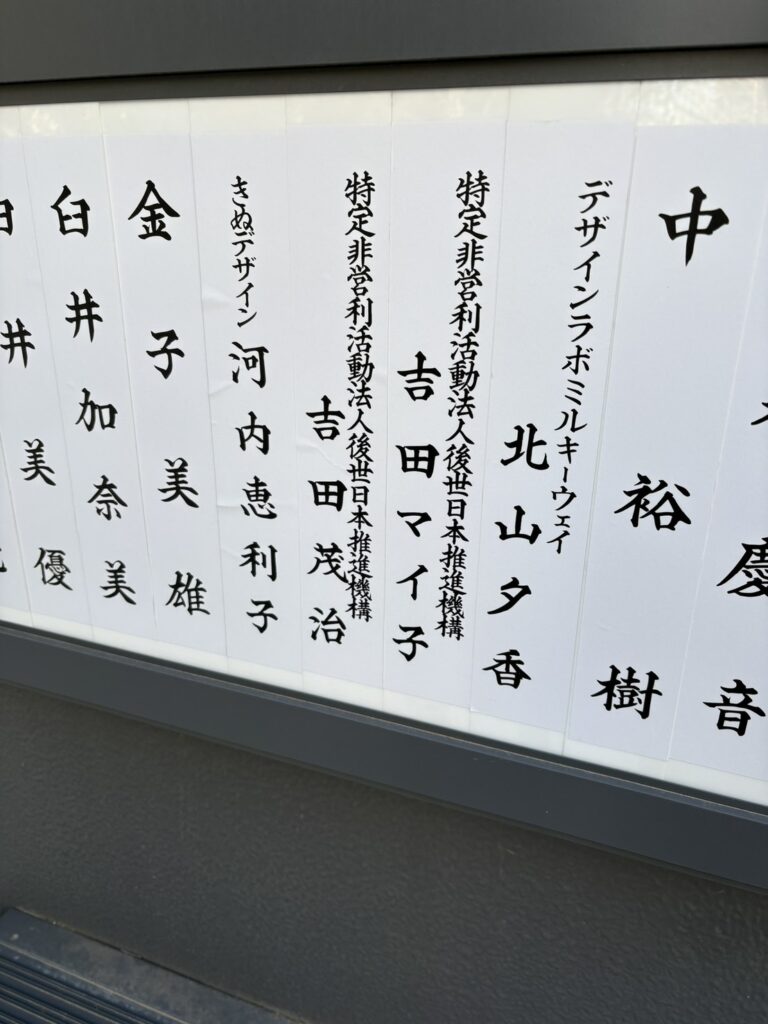 慶音
中裕樹
デザインラボミルキーウェイ
北山夕香
特定非営利活動法人後世日本推進機構
吉田マイ子
特定非営利活動法人後世日本推進機構
吉田茂治
きぬデザイン
河内恵利子
金子美雄
臼井加奈美
井美優